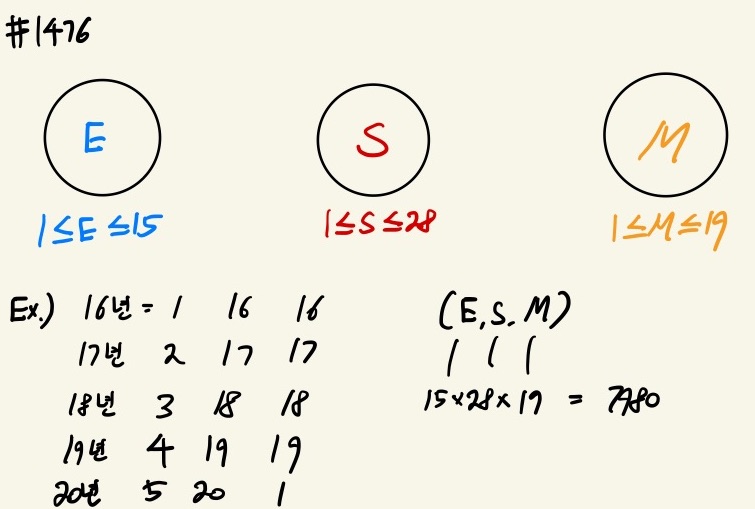 #1476
E S M
1≤E≤15 1≤S≤28 1≤M≤19
Ex.) 16년 = 1 16 16
17년 2 17 17
18년 3 18 18
19년 4 19 19
20년 5 20 1
(E, S. M)
15×28×19 = 7980